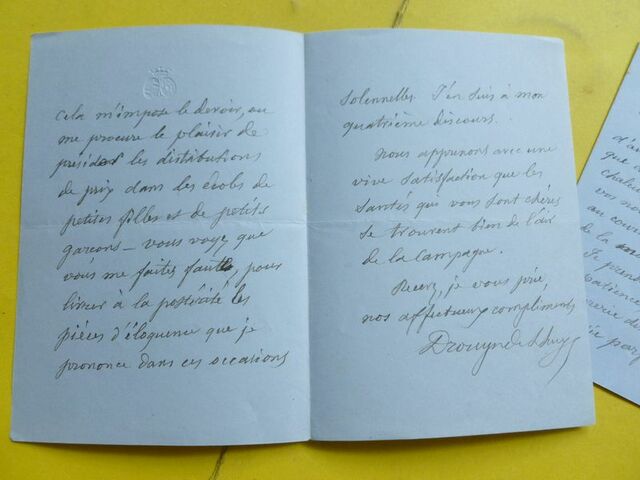 Cela m'impose le devoir, ou
me procure le plaisir de
présider les distributions
de prix dans les écoles de
petites filles et de petits
garçons – vous voyez que
vous me faites faute, pour
livrer à la postérité les
pièces d'éloquence que je
prononce dans ces occasions
solennelles. J'en suis à mon
quatrième discours.
Nous apprenons avec une
vive satisfaction que les
santés qui vous sont chères
se trouvent bien de l'air
de la campagne.
Recevez, je vous prie,
nos affectueux compliments
Drouyn de Lhuys
que
vos no
au cour
de la
Je prend